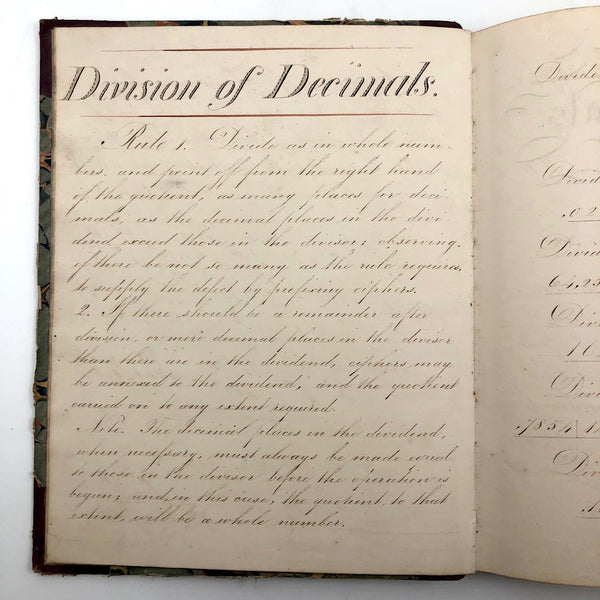 Division of Decimals.
Rule 1. Divide as in whole num-
bers, and point off from the right hand
of the quotient, as many places for deci-
mals, as the decimal places in the divi-
dend exceed those in the divisor; observing,
if there be not so many as the rule requires,
to supply the defect by prefixing ciphers.
2. If there should be a remainder after
division, or more decimal places in the divisor
than there are in the dividend, ciphers may
be annexed to the dividend, and the quotient
carried on to any extent required.
Note. The decimal places in the dividend,
when necessary, must always be made equal
to those in the divisor before the operation is
begun; and, in this case, the quotient, to that
extent, will be a whole number.
Divide
Divid
.02
Divid
64,25
Div
10
Divi
.7854)1
Div